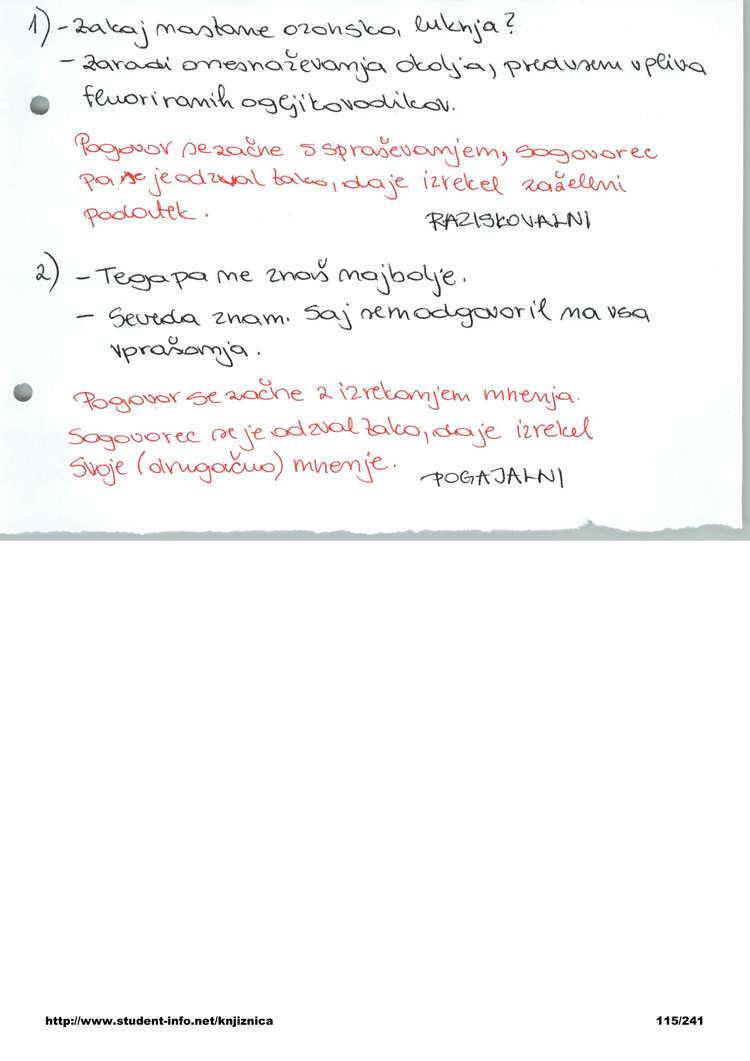 1) - Zakaj nastane ozonska luknja?
- Zaradi onesnaževanja okolja, predvsem vpliva
fluoriranih ogljikovodikov.
Pogovor se začne s spraševanjem, sogovorec
pa se je odzval tako, da je izrekel zaželeni
podatek.
RAZISKOVALNI
2) - Tega pa ne znaš najbolje.
- Seveda znam. Saj sem odgovoril na vsa
vprašanja.
Pogovor se začne z izrekanjem mnenja.
Sogovorec se je odzval tako, da je izrekel
svoje (drugačno) mnenje.
POGAJALNI
http://www.student-info.net/knjiznica
115/241